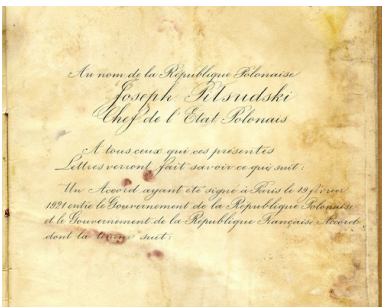 Au nom de la République Polonaise
Joseph Piłsudski
Chef de l'Etat Polonais
A tous ceux qui ces présentes
Lettres verront fait savoir ce qui suit:
Un Accord ayant été signé à Paris le 19 février
1921 entre le Gouvernement de la République Polonaise
et le Gouvernement de la République Française Accord
dont la teneur suit: